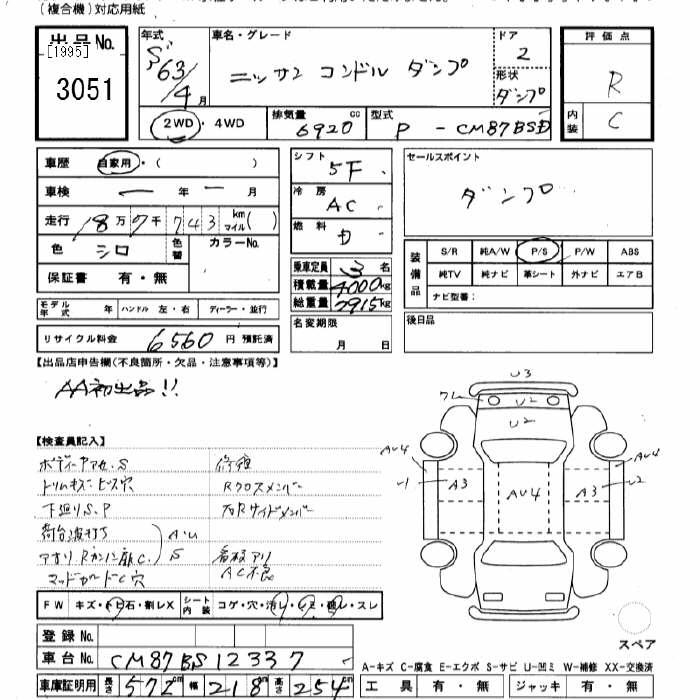 (複合機)対応用紙
出品No. [1995] 3051
年式 S63/4月
車名・グレード ニッサン コンドル ダンプ
ドア 2
形状 ダンプ
評価点 R
内装 C
2WD・4WD
排気量 6920cc
型式 P-CM87BSD
車歴 自家用・( )
車検 ー年ー月
走行 18万7千743km マイル( )
色 シロ 色替 カラーNo.
保証書 有・無
モデル年式 年 ハンドル 左・右 ディーラー・並行
リサイクル料金 6560円 預託済
シフト 5F
冷房 AC
燃料 D
乗車定員 3名
積載量 4000kg
総重量 7915kg
名変期限 月 日
セールスポイント
ダンプ
装備品 S/R 純A/W P/S P/W ABS
純TV 純ナビ 革シート 外ナビ エアB
ナビ型番:
後日品
【出品店申告欄(不良箇所・欠品・注意事項等)】
AA初出品!!
【検査員記入】
ボディーアセ.S 修復
トリムキズビス穴 Rクロスメンバー
下廻りS.P 左Rサイドメンバー
荷台波打ち A.U
S 看板アリ
マッドガードC穴 AC不良
U3
ワレ U2
U2
AU4 AU4
U1 A3 AU4 A3 U2
FW キズ・トビ石・割レX シート内装 コゲ・穴・汚レ・シミ・破レ・スレ
スペア
登録No.
車台No. CM87BS12337
車庫証明用 長さ572cm 幅218cm 高さ254cm
A-キズ C-腐食 E-エクボ S-サビ U-凹ミ W-補修 XX-交換済
工具 有・無 ジャッキ 有・無